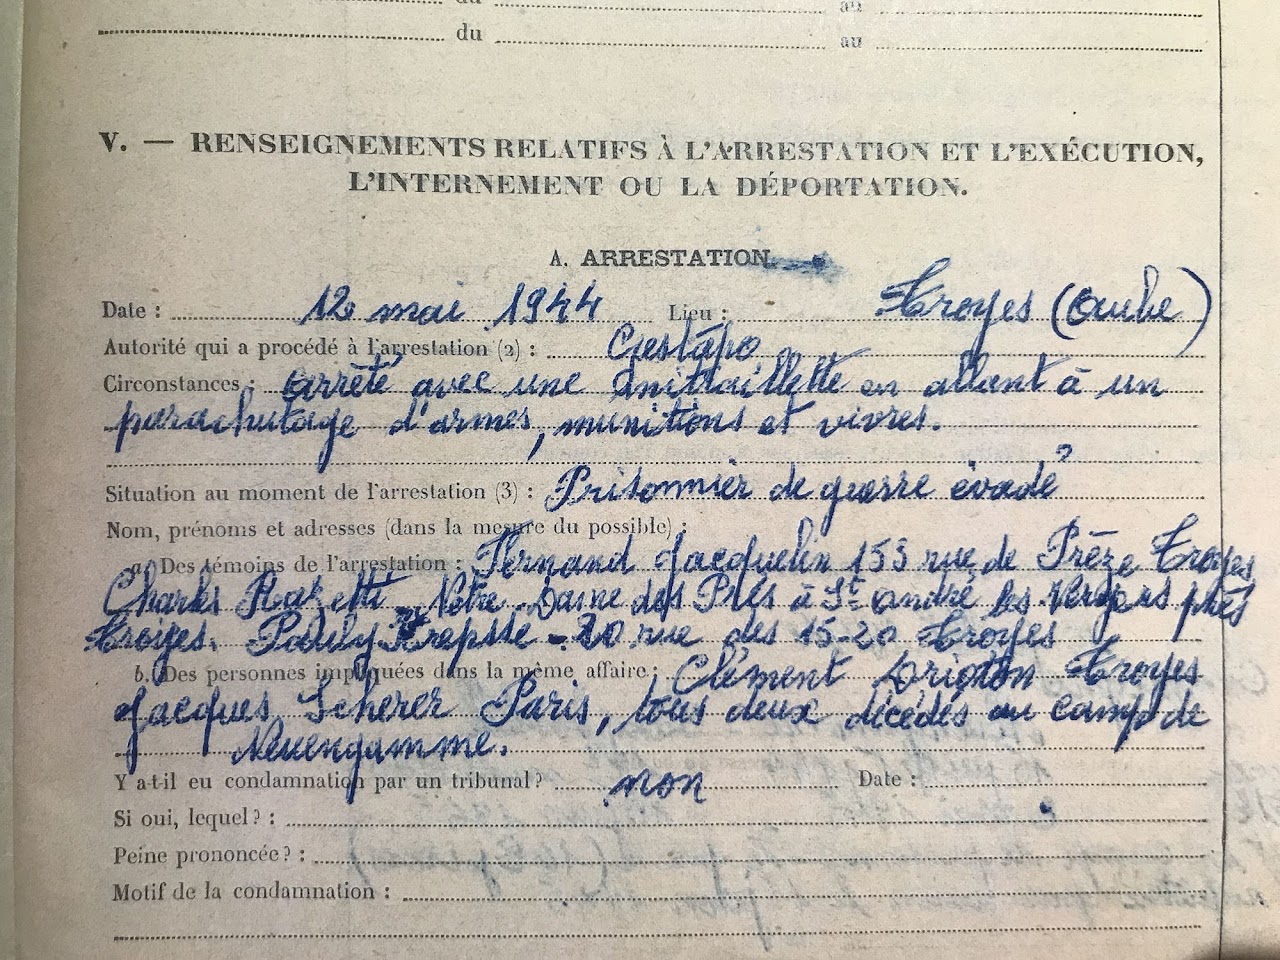 du au
du au
V. — RENSEIGNEMENTS RELATIFS À L'ARRESTATION ET L'EXÉCUTION,
L'INTERNEMENT OU LA DÉPORTATION.
A. ARRESTATION.
Date : 12 mai 1944 Lieu : Troyes (Aube)
Autorité qui a procédé à l'arrestation (2) : Gestapo
Circonstances : arrêté avec une mittaillette en allant à un
parachutage d'armes, munitions et vivres.
Situation au moment de l'arrestation (3) : Prisonnier de guerre évadé
Nom, prénoms et adresses (dans la mesure du possible) :
a. Des témoins de l'arrestation : Fernand Jacquelin 153 rue de Prèze Troyes
Charles Notre-Dame des Prés à St André les Vergers près
Troyes. Pauly - 20 rue des 15-20 Troyes
b. Des personnes impliquées dans la même affaire : Clément Drigton Troyes
Jacques Scherer Paris, tous deux décédés au camp de
Neuengamme.
Y a-t-il eu condamnation par un tribunal ? non Date :
Si oui, lequel ? :
Peine prononcée ? :
Motif de la condamnation :